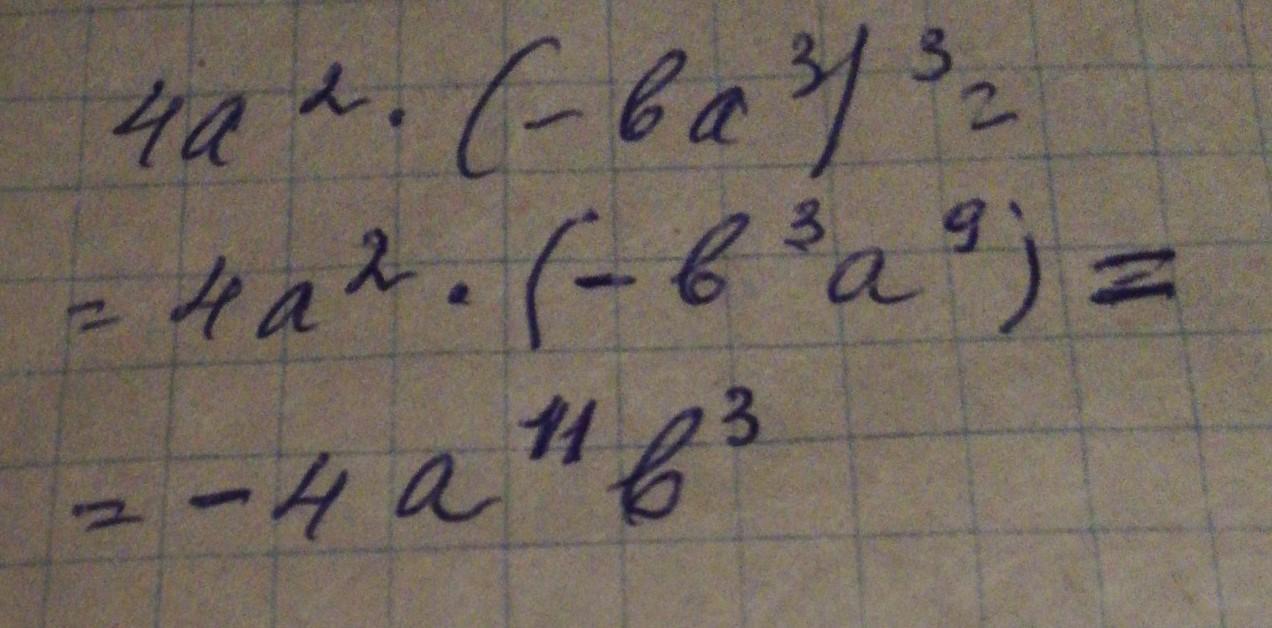 4a² · (-ba³)³ =
= 4a² · (-b³a⁹) =
= -4a¹¹b³